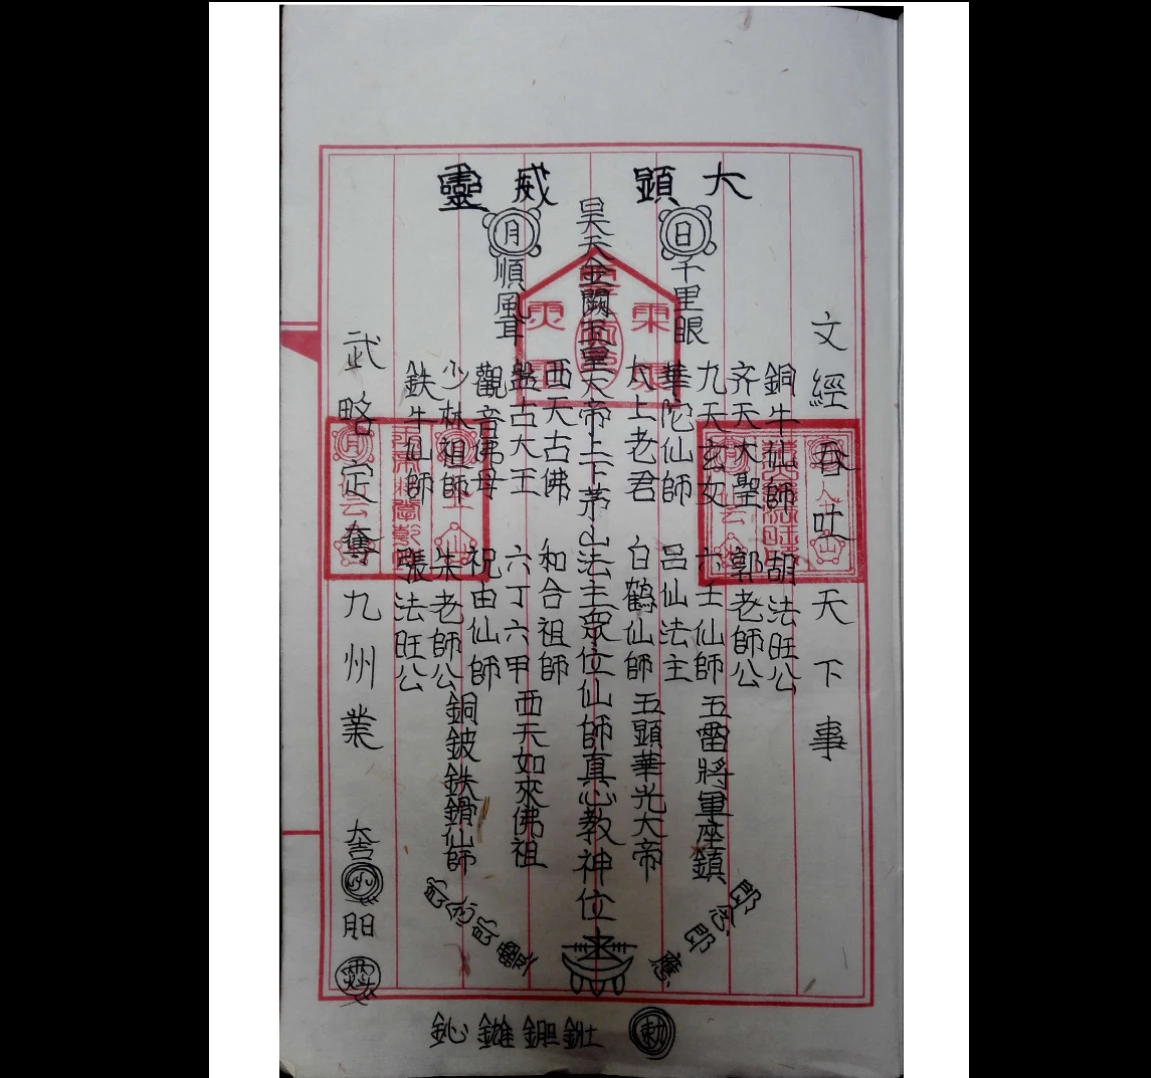 大顯威靈
文經吞吐天下事
銅牛仙師 胡法旺公
齐天大聖 郭老師公
九天玄女 六壬仙師
五雷將軍座鎮
日
千里眼
華陀仙師 呂仙法主
太上老君 白鶴仙師
五顯華光大帝
昊天金闕玉皇大帝上下茅山法主眾位仙師真心教神位
西天古佛 和合祖師
月
順風耳
盤古大王 六丁六甲
西天如來佛祖
觀音佛母 祝由仙師
少林祖師 朱老師公
銅鈹鉄鎖仙師
鉄牛仙師 張法旺公
武略定奪九州業
即念即應
即念即靈
勅